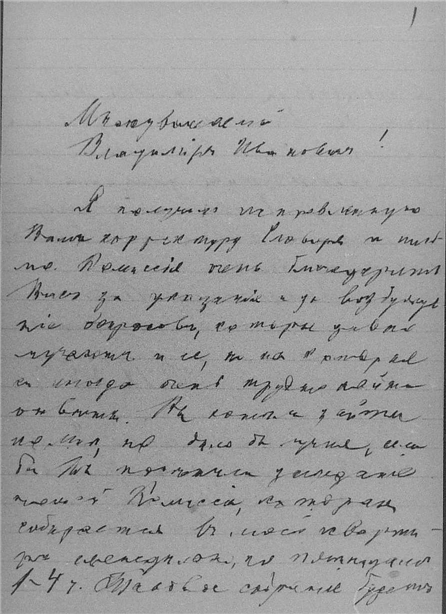 1
Многоуважаемый
Владиміръ Ивановичъ!
Я получилъ исправленную
Вами корректуру Словаря и письмо.
Комиссія очень благодаритъ
Васъ за указанія и за возбужде
ніе вопросовъ, которые давно
мучаютъ и ее, и на которые
ей иногда очень трудно найти
отвѣты. Вы хотите зайти
ко мнѣ, но было бы лучше, если
бы Вы посѣтили заседаніе
Комиссіи, которая
собирается въ моей кварти
рѣ еженедѣльно, по пятницамъ
1-4 ч. Таковое собраніе будетъ